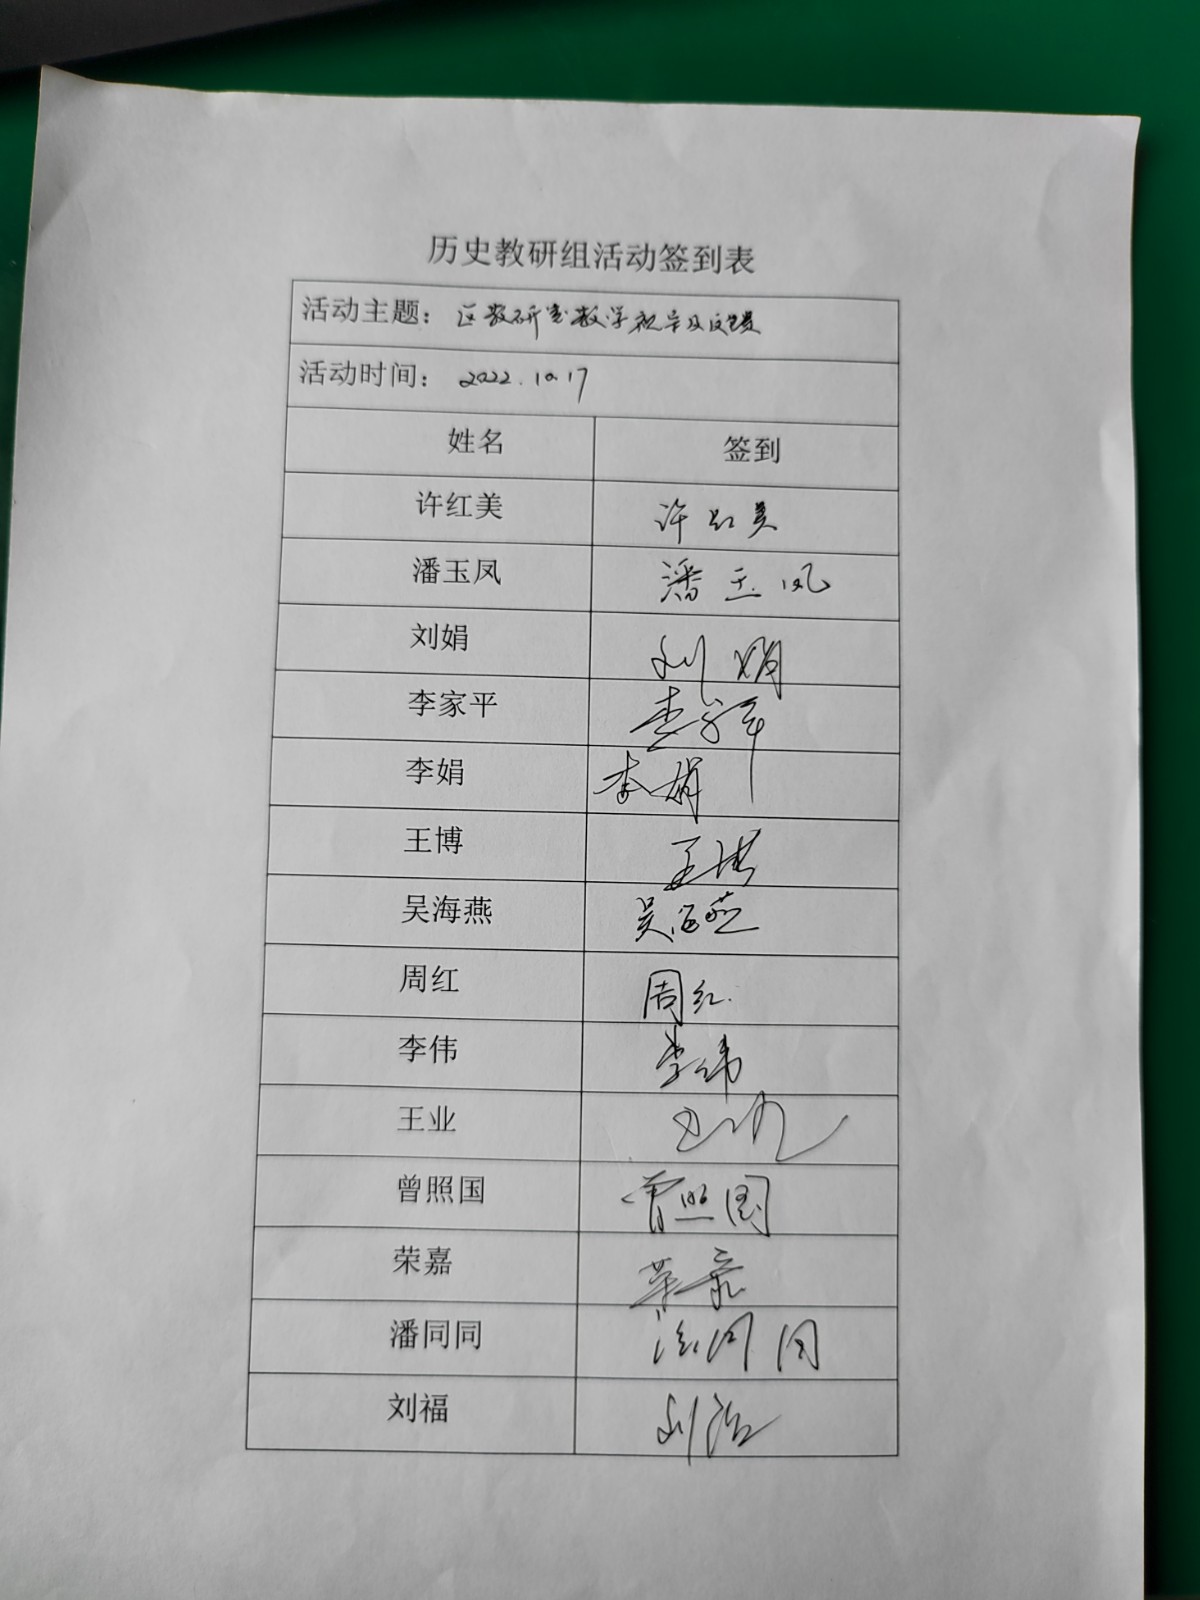 历史教研组活动签到表
活动主题：区教研室教学视导及反馈
活动时间：2022.10.17
姓名 签到
许红美 许红美
潘玉凤 潘玉凤
刘娟 刘娟
李家平 李家平
李娟 李娟
王博 王博
吴海燕 吴海燕
周红 周红
李伟 李伟
王业 王业
曾照国 曾照国
荣嘉 荣嘉
潘同同 潘同同
刘福 刘福